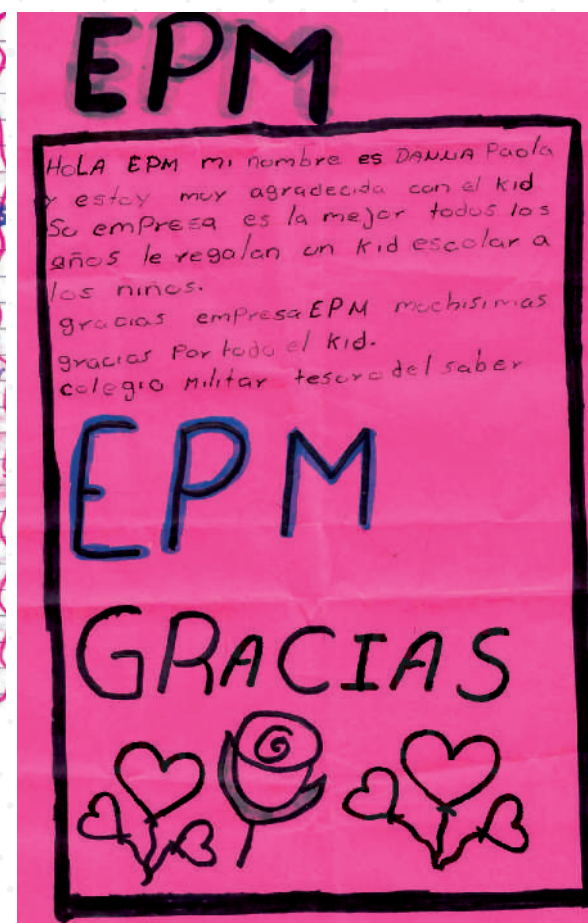 EPM
HOLA EPM mi nombre es DANNA Paola
y estoy muy agradecida con el kid
Su empresa es la mejor todos los
años le regalan un kid escolar a
los niños.
gracias empresa EPM muchisimas
gracias Por todo el kid.
colegio Militar tesoro del saber
EPM
GRACIAS